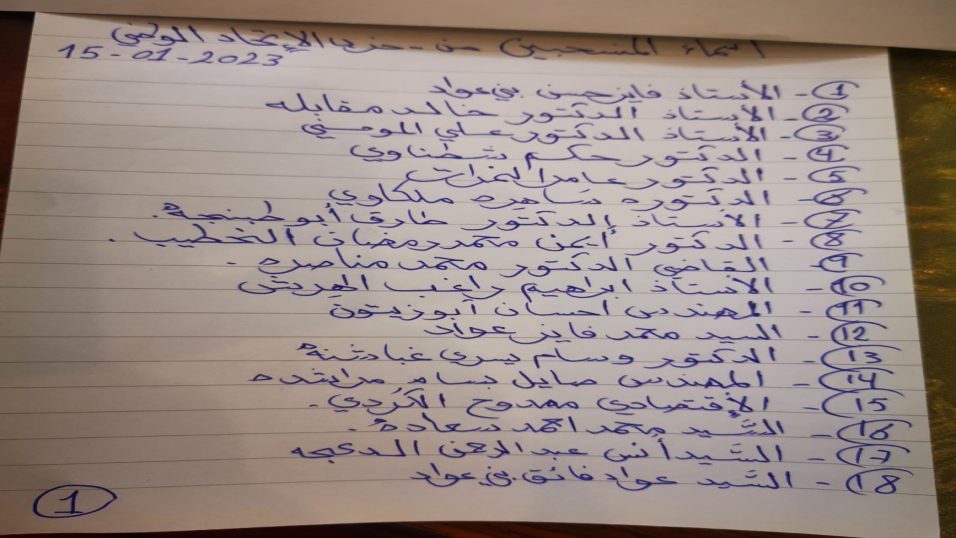 أسماء المنسحبين من حزب الإتحاد الوطني
15-01-2023
1- الأستاذ فايز حسن بني عواد
2- الأستاذ الدكتور خالد مقابله
3- الأستاذ الدكتور علي المومني
4- الدكتور حكم شطناوي
5- الدكتور عامر النمرات
6- الدكتوره ساهره ملكاوي
7- الأستاذ الدكتور طارق أبو طبنجة.
8- الدكتور أيمن محمد رمضان الخطيب.
9- القاضي الدكتور محمد مناصره.
10- الأستاذ ابراهيم راغب
11- المهندس احسان أبوزيتون
12- السيد محمد فايز عواد
13- الدكتور وسام يسري غبادشه
14- المهندس صايل بسام مراشده
15- الأقتصادي ممدوح الكردي.
16- السيد محمد احمد سعادة.
17- السيد أنس عبد الرحمن الدعجه
18- السيد عواد فائق بني عواد
1